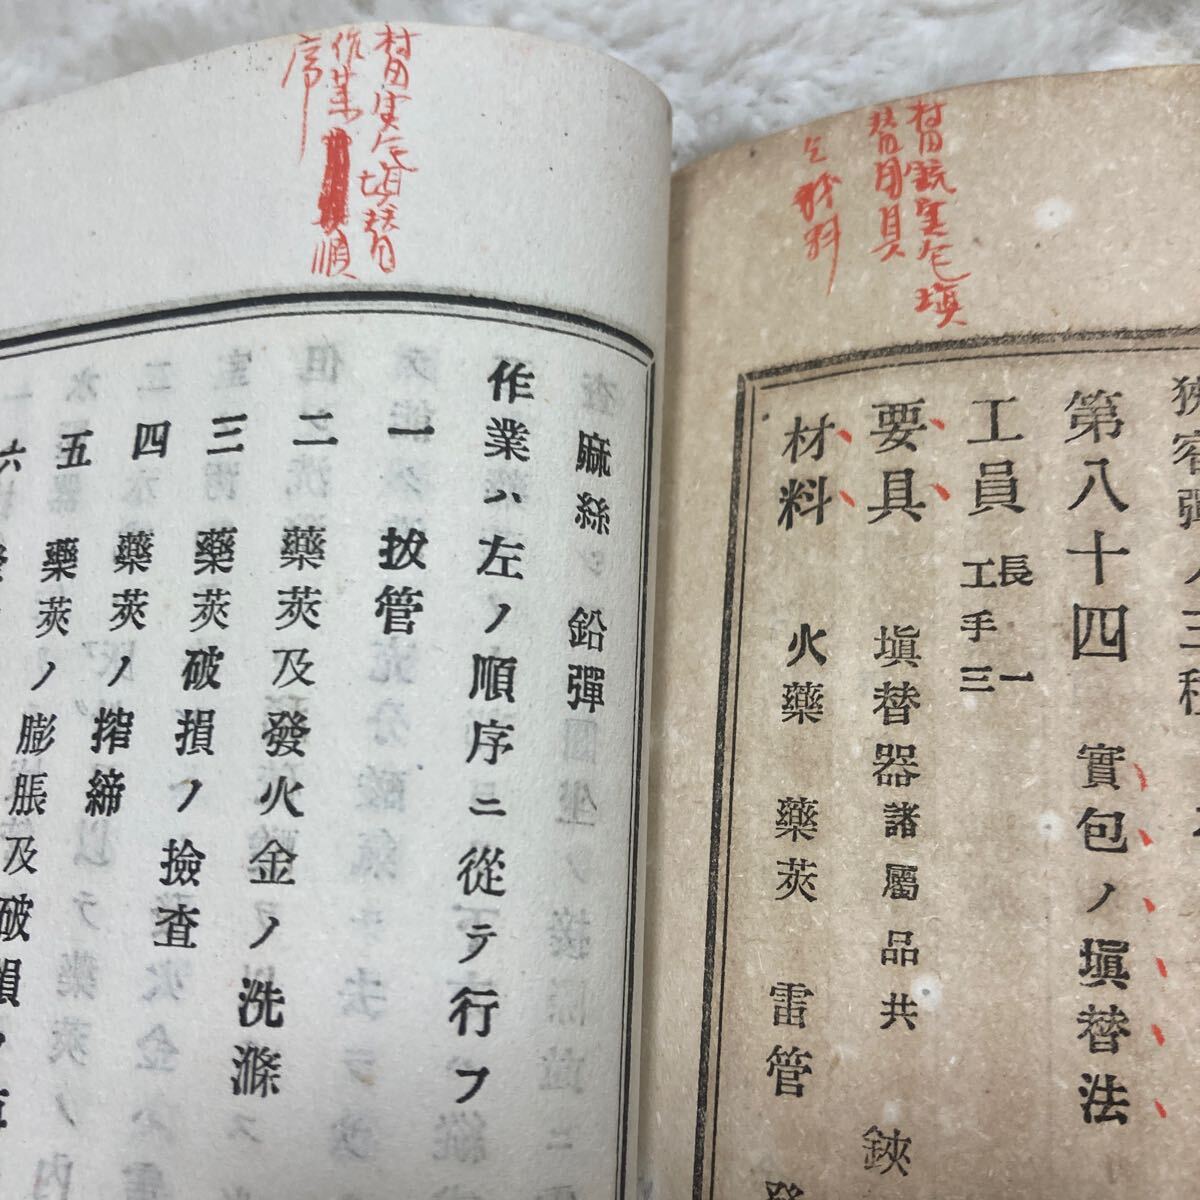 村田銃実包塡
替用具
材料
第八十四 實包ノ塡替法
工員 長一
工手三
要具 塡替器諸屬品共 鋏
材料 火藥 藥莢 雷管
村田実包塡替
作業順
序
麻絲 鉛彈
作業ハ左ノ順序ニ從テ行フ
一 拔管
二 藥莢及發火金ノ洗滌
三 藥莢破損ノ撿查
四 藥莢ノ搾締
五 藥莢ノ膨脹及破損ノ
六